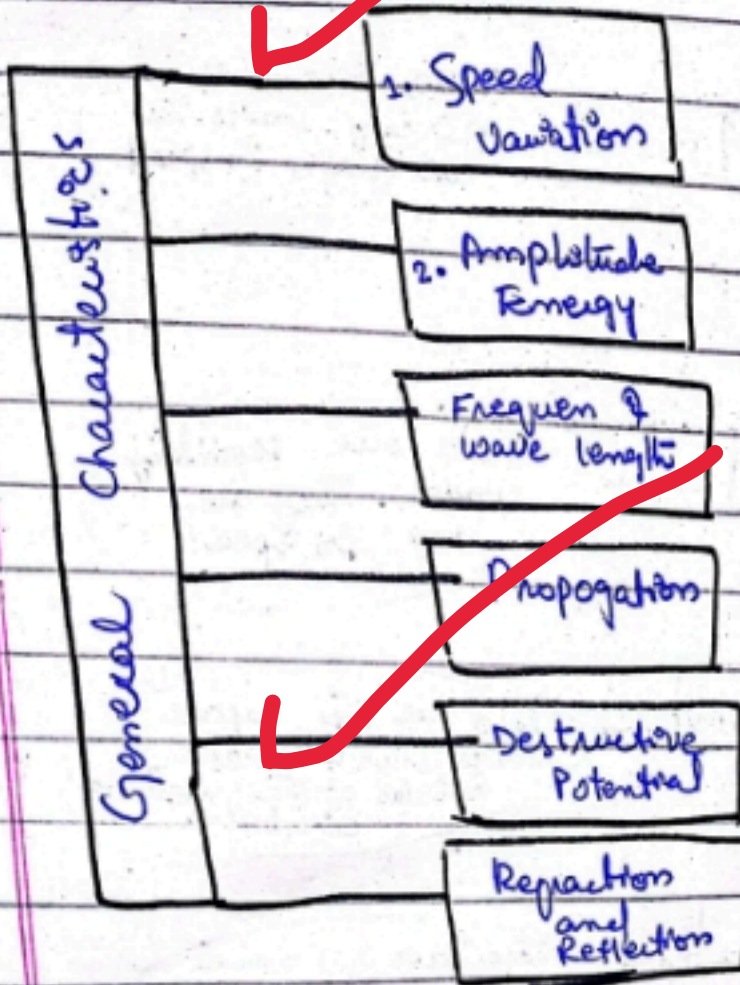 General Characteristics
1. Speed
Variation
2. Amplitude
Energy
Frequen &
wave length
Propogation
Destructive
Potential
Refraction
and
Reflection